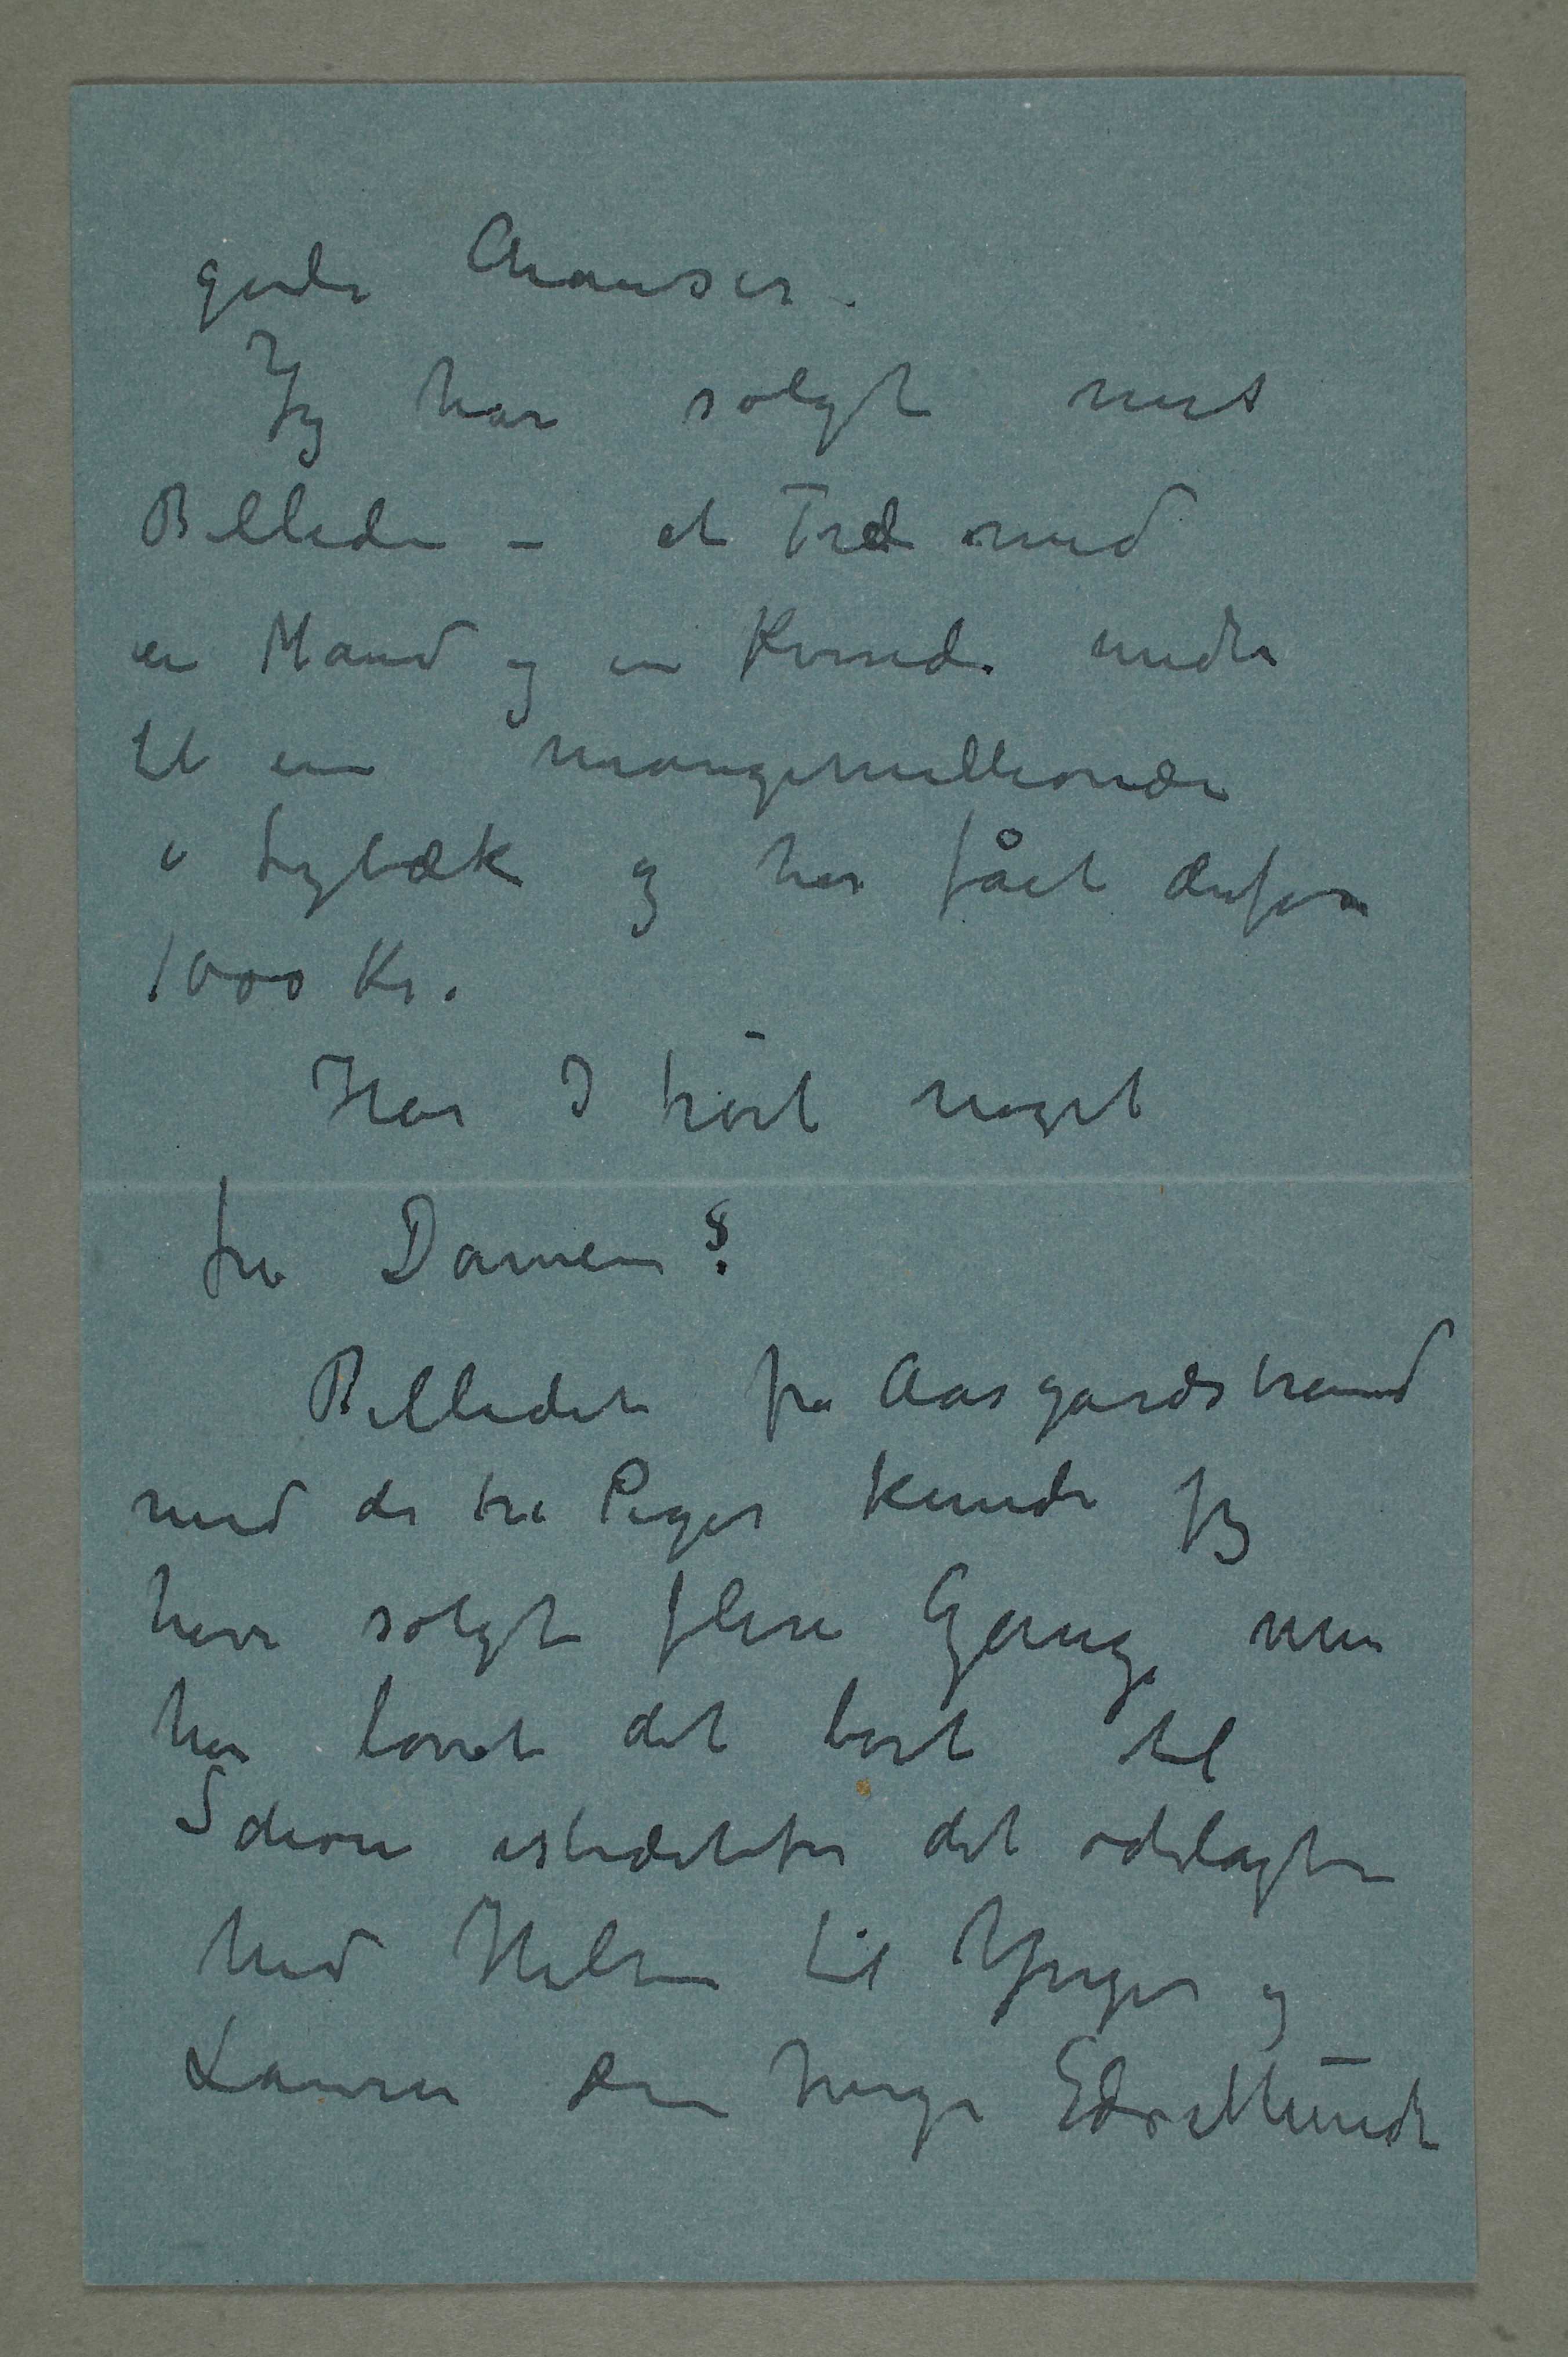 gode Chanser.
Jeg har solgt mit
Billede – et Træ med
en Mand og en Kvinde under
til en mangemillionær
i Lybæk og har fået derfor
1000 Kr.
Har I hørt noget
fra Damen?
Billedet fra Aasgardstrand
med de tre Piger kunde jeg
have solgt flere Gange men
har lovet det bort til
Schou istedetfor det ødelagte
Med Hilsen til Inger og
Laura din hengivne Edv. Munch